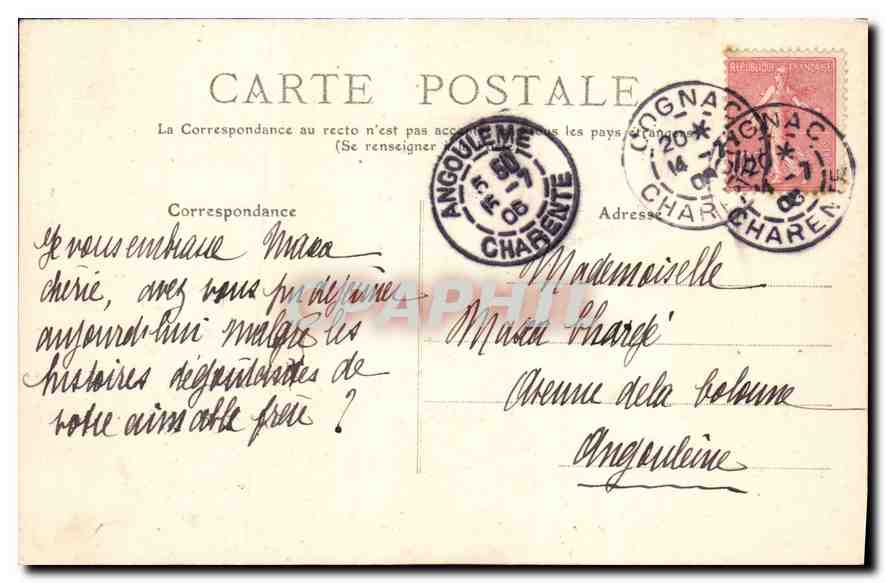 CARTE POSTALE
La Correspondance au recto n'est pas acceptée par tous les pays étrangers
(Se renseigner à la
RÉPUBLIQUE FRANÇAISE
COGNAC
20 *
14 -7
06
CHARENTE
COGNAC
20 *
-7
06
CHARENTE
ANGOULEME
5 -7
06
CHARENTE
Correspondance
Adresse
Je vous embrasse Maxa
chérie, avez vous pu déjeuner
aujourd'hui malgré les
histoires dégoûtantes de
votre aimable frère ?
Mademoiselle
Maxa Chargé
Avenue de la Colonne
Angoulême
CPAPHIL